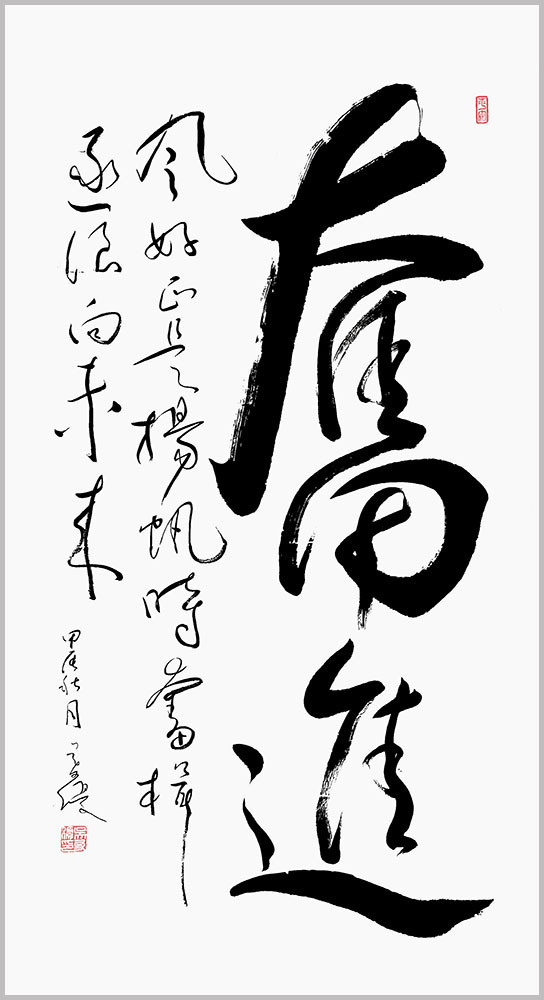 奮進
风好正是揚帆時奮楫
逐浪向未来
甲辰秋月